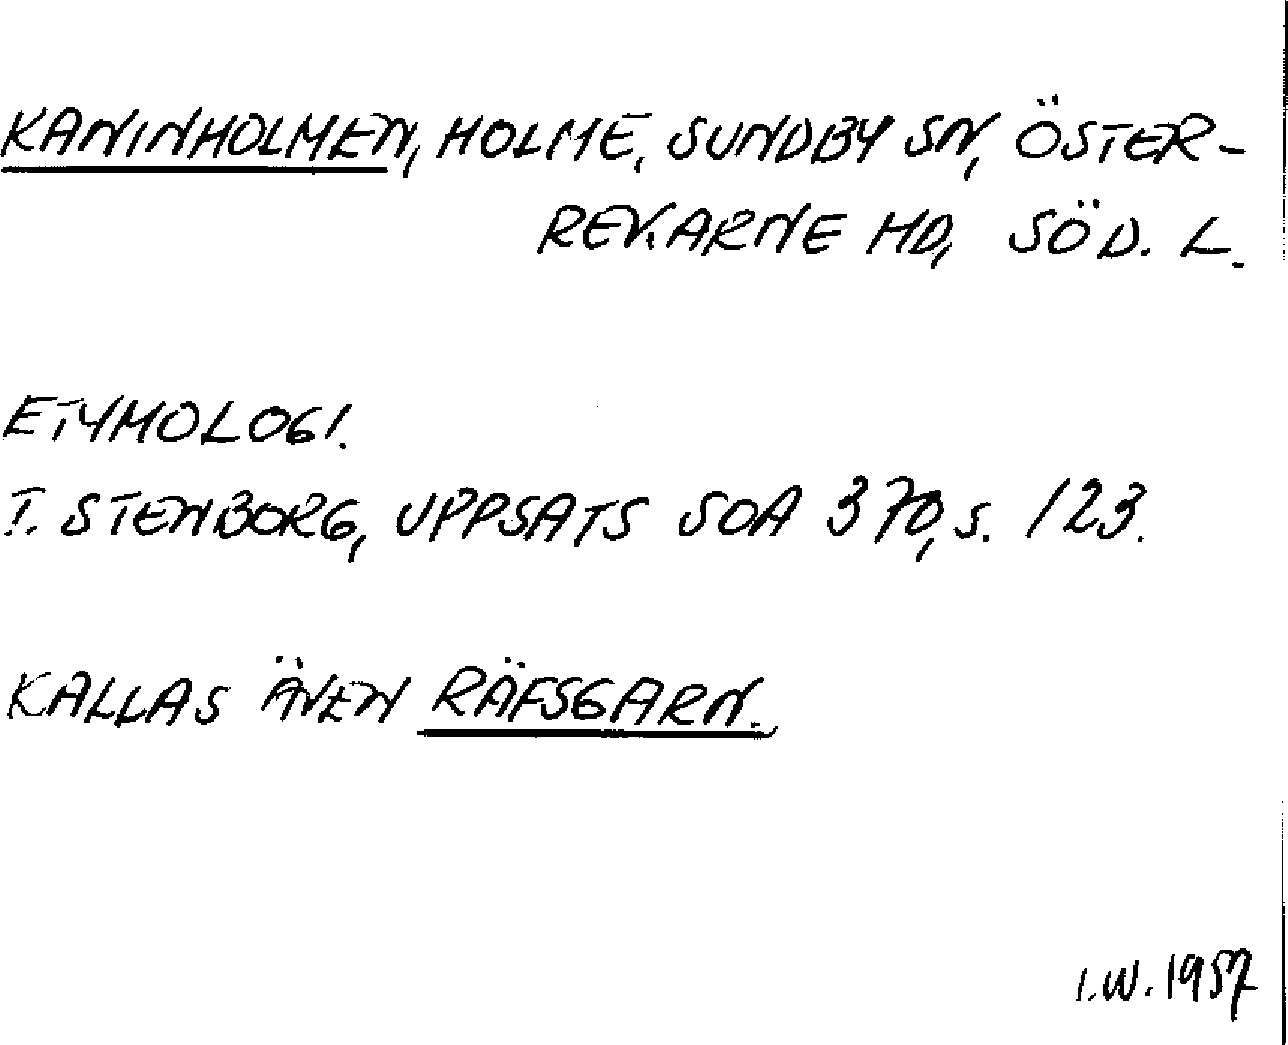 KANINHOLMEN, HOLME, SUNDBY SN, ÖSTER-
REKARNE HD, SÖD. L.
ETYMOLOGI.
I. STENBORG, UPPSATS SOA 370, S. 123.
KALLAS ÄVEN RÄFSGARN.
I.W. 1957